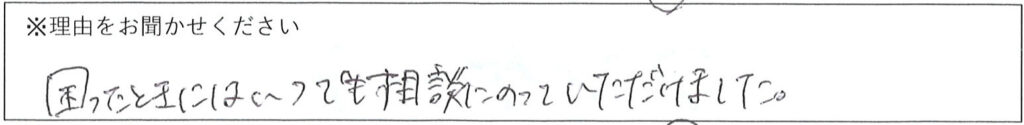 ※理由をお聞かせください
困ったときにはいつでも相談にのっていただけました。